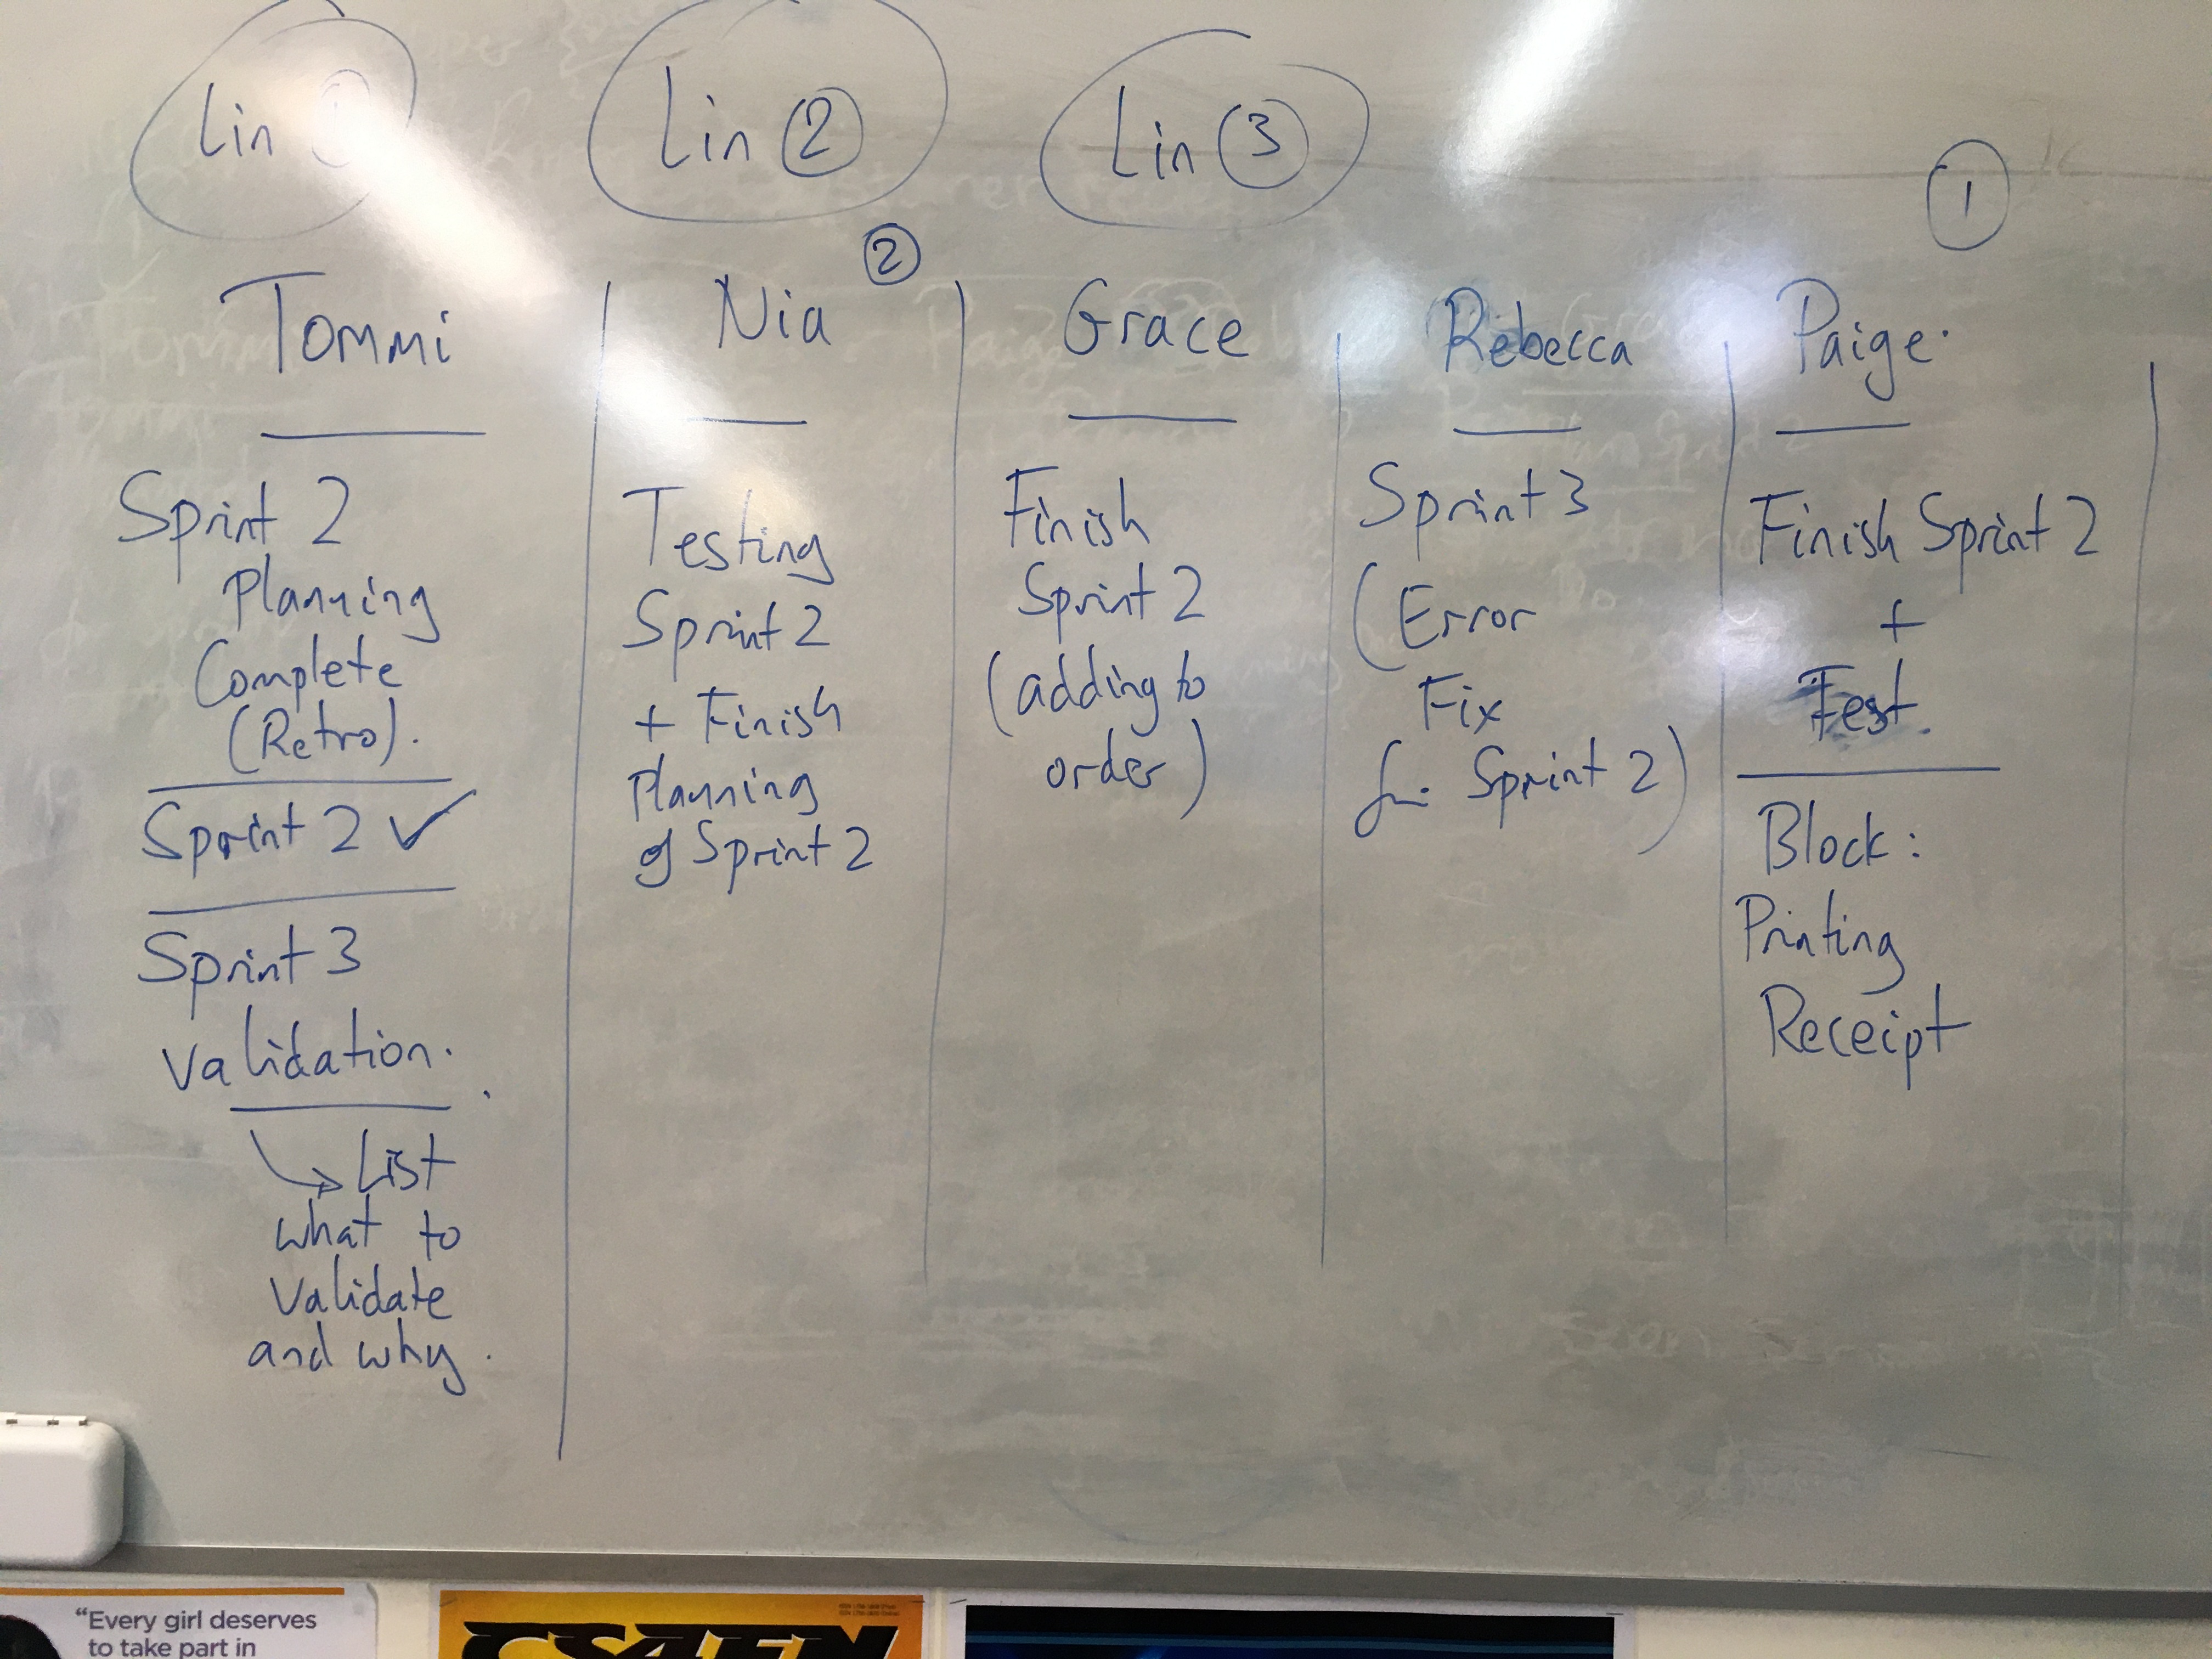 Lin ①
Lin ②
Lin ③
①
②
Tommi
Sprint 2
Planning
Complete
(Retro).
Sprint 2 ✓
Sprint 3
Validation.
→ List
what to
Validate
and why.
Nia
Testing
Sprint 2
+ Finish
Planning
of Sprint 2
Grace
Finish
Sprint 2
(adding to
order)
Rebecca
Sprint 3
(Error
Fix
for Sprint 2)
Paige.
Finish Sprint 2
+
Test.
Block:
Printing
Receipt
"Every girl deserves
to take part in
CS4FN